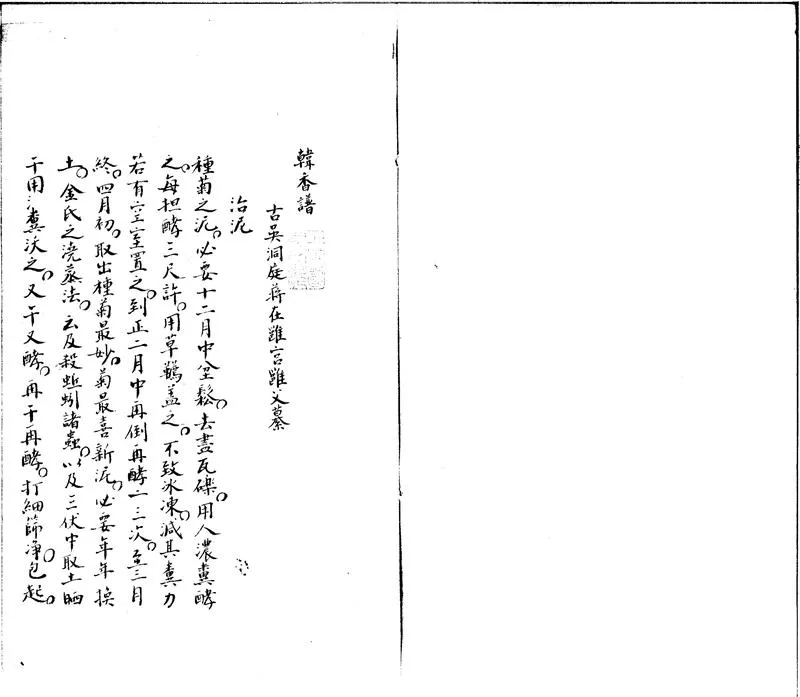 韓香譜
古吳洞庭蔣在雝宫雝父纂
治泥
種菊之泥。必要十二月中坌鬆。去盡瓦礫。用人濃糞酵
之。每担酵三尺許。用草鷄盖之。不致冰凍。減其糞力
若有空室置之。到正二月中再倒再酵二三次。至三月
終。四月初。取出種菊最妙。菊最喜新泥。必要年年換
土。金氏之澆蒸法。云及殺蚯蚓諸蟲。以及三伏中取土晒
干用糞沃之。又干又酵。再干再酵。打細篩净包起。